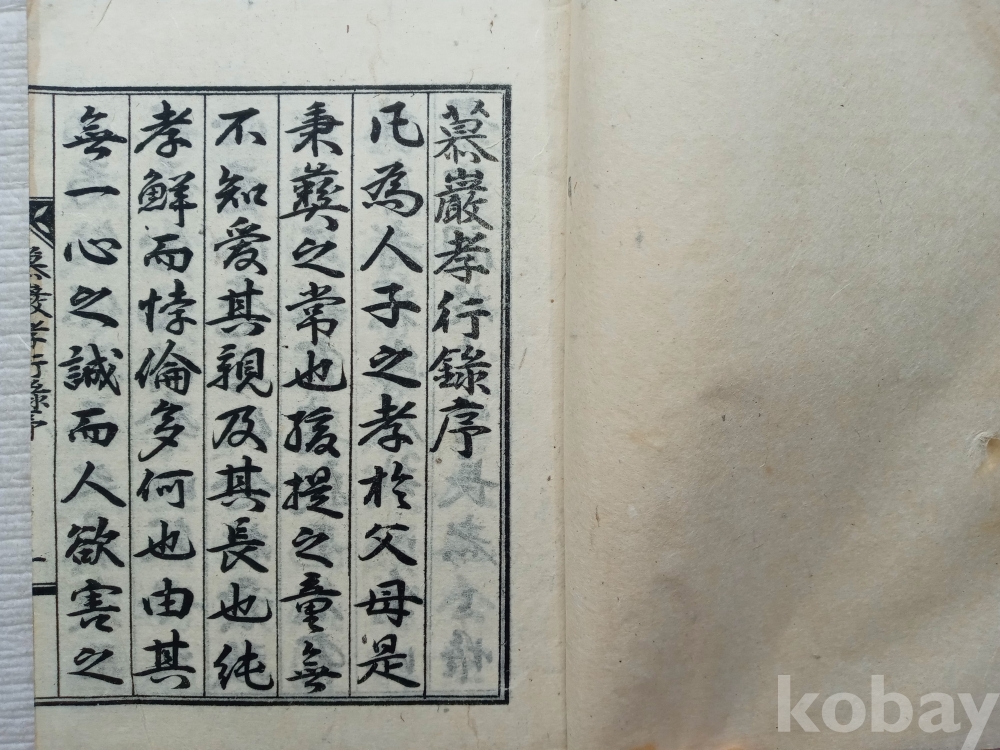 慕巖孝行錄序
凡為人子之孝於父母是
秉彝之常也孩提之童無
不知愛其親及其長也純
孝鮮而悖倫多何也由其
無一心之誠而人欲害之
慕巖孝行錄序
一
kobay